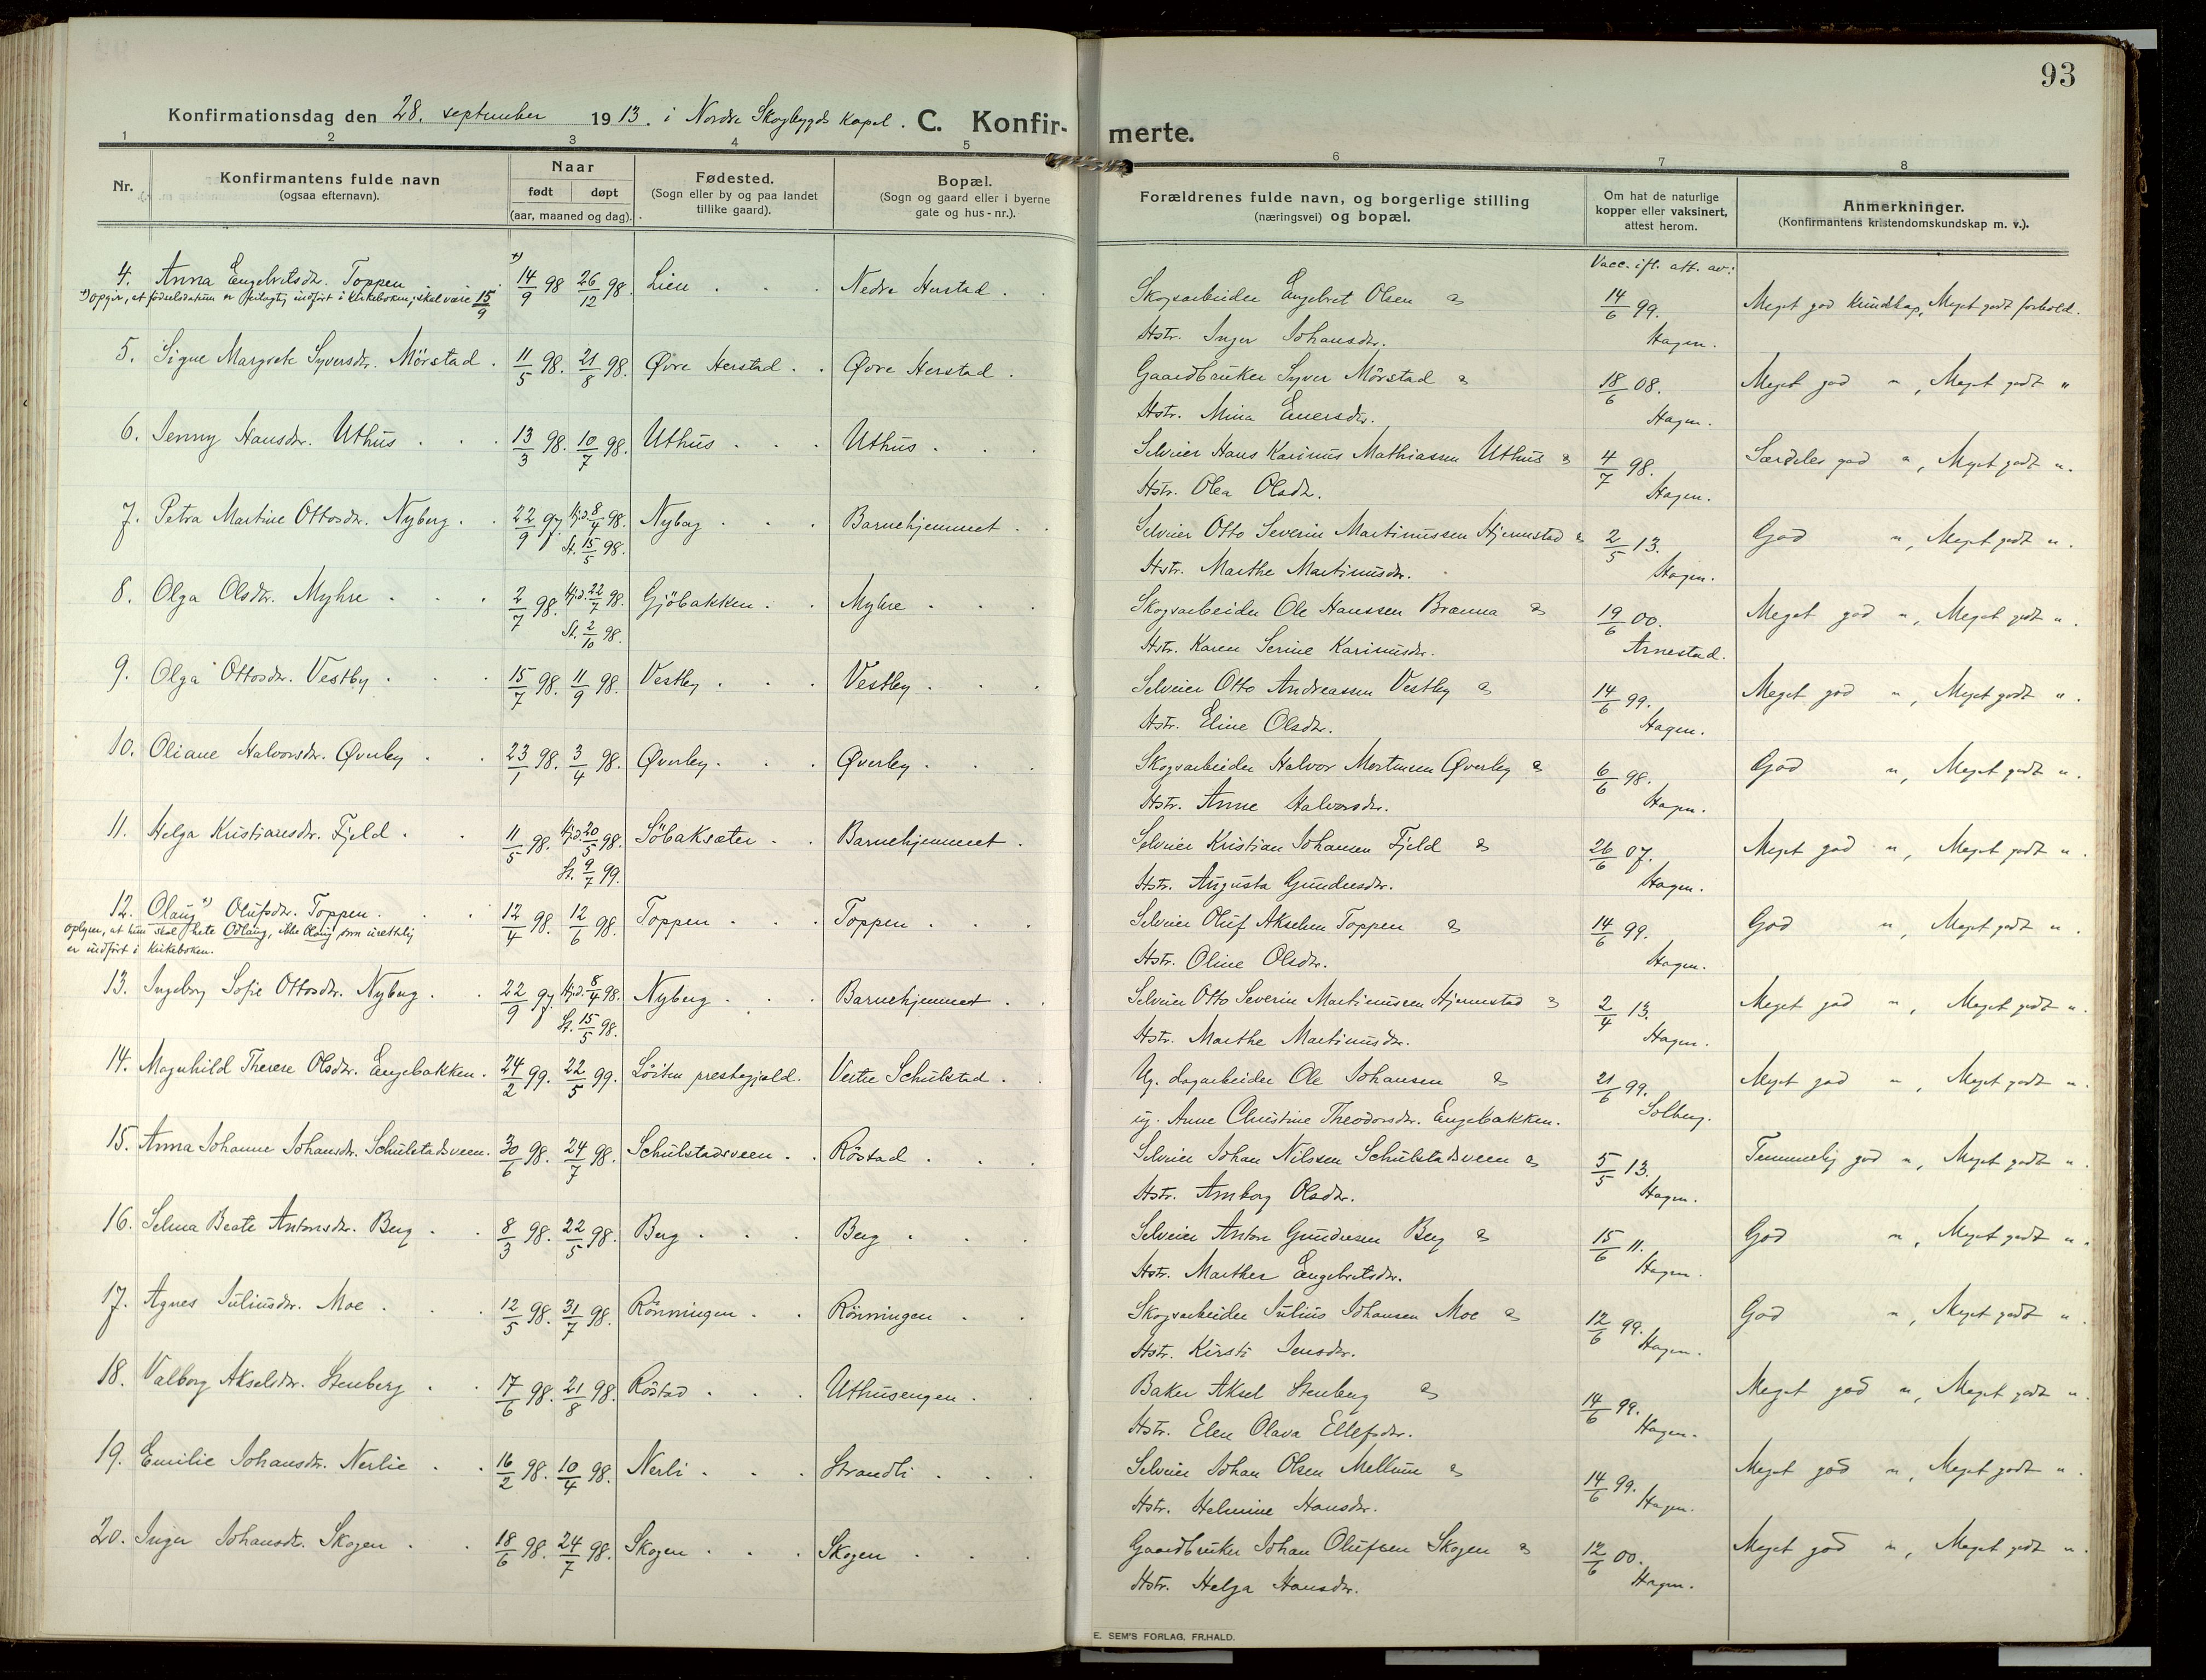 93
Konfirmationsdag den 28. september 1913. i Nordre Skogbygds Kapel. C. Konfir- merte.
1 2 3 4 5 6 7 8
Nr.
Konfirmantens fulde navn
(ogsaa efternavn).
Naar
født døpt
(aar, maaned og dag).
Fødested.
(Sogn eller by og paa landet
tillike gaard).
Bopæl.
(Sogn og gaard eller i byerne
gate og hus-nr.).
Forældrenes fulde navn, og borgerlige stilling
(næringsvei) og bopæl.
Om hat de naturlige
kopper eller vaksinert,
attest herom.
Anmerkninger.
(Konfirmantens kristendomskundskap m. v.).
Vacc. ifl. att. av:
4. Anna Engebretsdr. Toppen *) 14/9 98 26/12 98. Lien Nedre Herstad. Skogsarbeider Engebret Olsen & 14/6 99. Meget god Kundskap, Meget godt forhold.
*) opgir, at fødselsdatum er feilagtig indført i kirkeboken; skal være 15/9
Hstr. Inger Johansdr. Hagen.
5. Signe Margrete Syversdr. Mörstad. 11/5 98. 21/8 98. Øvre Herstad. Øvre Herstad. Gaardbruker Syver Mörstad & 18/6 08. Meget god ", Meget godt "
Hstr. Mina Einersdr. Hagen.
6. Jenny Hansdr. Uthus. 13/3 98. 10/7 98. Uthus. Uthus. Selveier Hans Karinus Mathiassen Uthus & 4/7 98. Særdeles god ", Meget godt ".
Hstr. Olea Olsdr. Hagen.
7. Petra Martine Ottosdr. Nyberg. 22/9 97. Hjd. 8/4 98. Nyberg. Barnehjemmet. Selveier Otto Severin Martinussen Hjernstad & 2/5 13. God ", Meget godt ".
St. 15/5 98. Hstr. Marthe Martinusdr. Hagen.
8. Olga Olsdr. Myhre. 2/7 98. Hjd. 22/7 98. Gjöbakken. Myhre. Skogsarbeider Ole Hanssen Brænna & 19/6 00. Meget god ", Meget godt ".
St. 2/10 98. Hstr. Karen Serine Karinusdr. Arnestad.
9. Olga Ottosdr. Vestby. 15/7 98. 11/9 98. Vestby. Vestby. Selveier Otto Andreassen Vestby & 14/6 99. Meget god ", Meget godt ".
Hstr. Eline Olsdr. Hagen.
10. Oliane Halvorsdr. Øverby. 23/1 98. 3/4 98. Øverby. Øverby. Skogsarbeider Halvor Mortensen Øverby & 6/6 98. God ", Meget godt ".
Hstr. Anne Halvorsdr. Hagen.
11. Helga Kristiansdr. Fjeld. 11/5 98. Hjd. 20/5 98. Söbaksæter. Barnehjemmet. Selveier Kristian Johansen Fjeld & 26/6 07. Meget god ", Meget godt ".
St. 9/7 99. Hstr. Augusta Gundersdr. Hagen.
12. Olaug *) Olufsdr. Toppen. 12/4 98. 12/6 98. Toppen. Toppen. Selveier Oluf Akselsen Toppen & 14/6 99. God ", Meget godt ".
oplyser, at hun skal hete Odlaug, ikke Olaug, som urettelig
er indført i kirkeboken.
Hstr. Oline Olsdr. Hagen.
13. Ingeborg Sofie Ottosdr. Nyberg. 22/9 97. Hjd. 8/4 98. Nyberg. Barnehjemmet. Selveier Otto Severin Martinussen Hjernstad & 2/4 13. Meget god ", Meget godt ".
St. 15/5 98. Hstr. Marthe Martinusdr. Hagen.
14. Magnhild Therese Olsdr. Engebakken. 24/2 99. 22/5 99. Löiten prestegjeld. Vestre Schulstad. Ug. dagarbeider Ole Johansen & 21/6 99. Meget god ", Meget godt ".
ug. Anne Christine Theodorsdr. Engebakken. Solberg.
15. Anna Johanne Johansdr. Schulstadsveen. 30/6 98. 24/7 98. Schulstadsveen. Röstad. Selveier Johan Nilssen Schulstadsveen & 5/5 13. Temmelig god ", Meget godt ".
Hstr. Amborg Olsdr. Hagen.
16. Selma Beate Antonsdr. Berg. 8/3 98. 22/5 98. Berg. Berg. Selveier Anton Gundersen Berg & 15/6 11. God ", Meget godt ".
Hstr. Marthea Engebretsdr. Hagen.
17. Agnes Juliusdr. Moe. 12/5 98. 31/7 98. Rönningen. Rönningen. Skogsarbeider Julius Johansen Moe & 12/6 99. God ", Meget godt ".
Hstr. Kirsti Jensdr. Hagen.
18. Valborg Akselsdr. Stenberg. 17/6 98. 21/8 98. Röstad. Uthusengen. Baker Aksel Stenberg & 14/6 99. Meget god ", Meget godt ".
Hstr. Elen Olava Ellefsdr. Hagen.
19. Emilie Johansdr. Nerlie. 16/2 98. 10/4 98. Nerli. Strandli. Selveier Johan Olsen Mellum & 14/6 99. Meget god ", Meget godt ".
Hstr. Helmine Hansdr. Hagen.
20. Inger Johansdr. Skogen. 18/6 98. 24/7 98. Skogen. Skogen. Gaardbruker Johan Olufsen Skogen & 12/6 00. Meget god ", Meget godt ".
Hstr. Helga Hansdr. Hagen.
E. SEM'S FORLAG, FR.HALD.